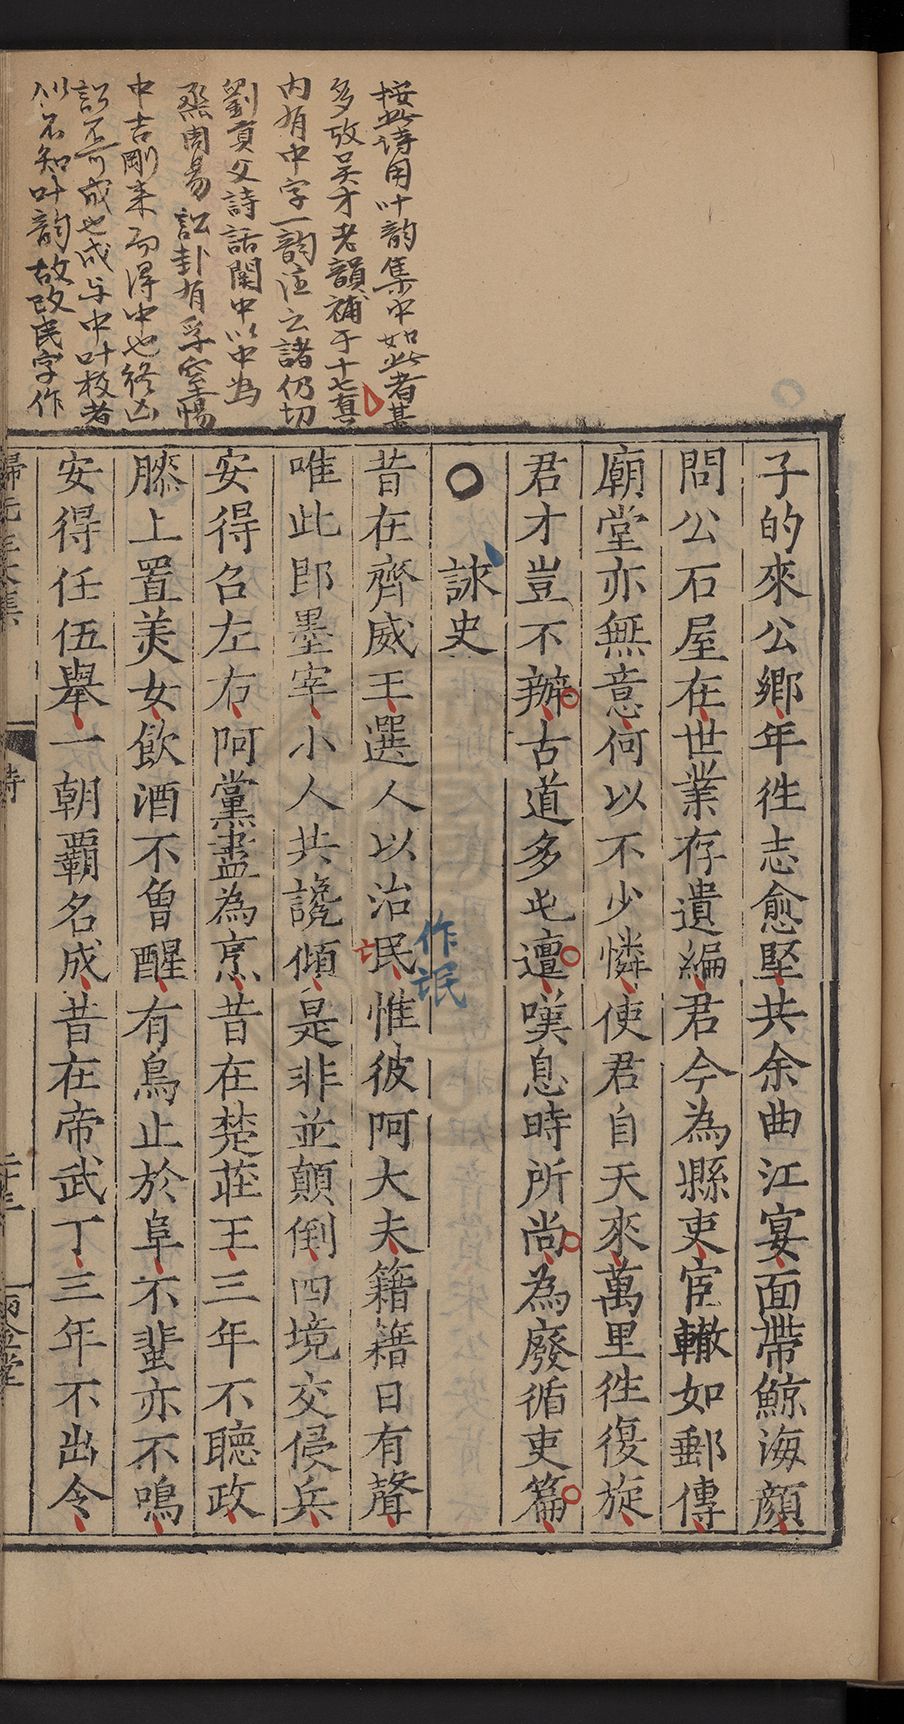 按此詩用叶韵集中如此者甚
多攷吳才老韻補于十七眞
内有中字一韵注云諸仍切
劉貢父詩話關中以中為
烝周易訟卦有孚窒惕
中吉剛来而得中也終凶
訟不可成也成与中叶校者
似不知叶韵故改民字作
子的來公鄉年徃志愈堅共余曲江宴面帶鯨海顔
問公石屋在世業存遺編君今為縣吏宦轍如郵傳
廟堂亦無意何以不少憐使君自天來萬里徃復旋
君才豈不辦古道多屯邅嘆息時所尚為廢循吏篇
○ 詠史
作氓
昔在齊威王選人以治民惟彼阿大夫籍籍日有聲
唯此即墨宰小人共讒傾是非並顛倒四境交侵兵
安得召左右阿黨盡為烹昔在楚莊王三年不聽政
膝上置美女飲酒不曾醒有鳥止於阜不蜚亦不鳴
安得任伍舉一朝覇名成昔在帝武丁三年不出令
詩